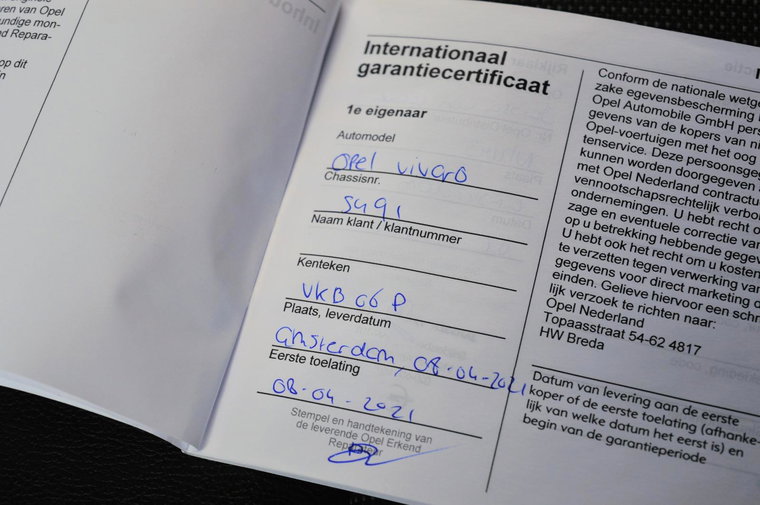 ren van Opel
undige mon-
d Repara-
op dit
in
Internationaal
garantiecertificaat
1e eigenaar
Automodel
Opel vivaro
Chassisnr.
5491
Naam klant / klantnummer
Kenteken
VKB 06 P
Plaats, leverdatum
Amsterdam, 08-04-2021
Eerste toelating
08-04-2021
Stempel en handtekening van
de leverende Opel Erkend
Reparateur
Conform de nationale wetge
zake egevensbescherming
Opel Automobile GmbH pers
gevens van de kopers van ni
Opel-voertuigen met het oog
tenservice. Deze persoonsgeg
kunnen worden doorgegeven
met Opel Nederland contractu
vennootschapsrechtelijk verbo
ondernemingen. U hebt recht o
zage en eventuele correctie van
op u betrekking hebbende gegev
U hebt ook het recht om u kosten
te verzetten tegen verwerking van
gegevens voor direct marketing d
einden. Gelieve hiervoor een schr
lijk verzoek te richten naar:
Opel Nederland
Topaasstraat 54-62 4817
HW Breda
Datum van levering aan de eerste
koper of de eerste toelating (afhanke-
lijk van welke datum het eerst is) en
begin van de garantieperiode